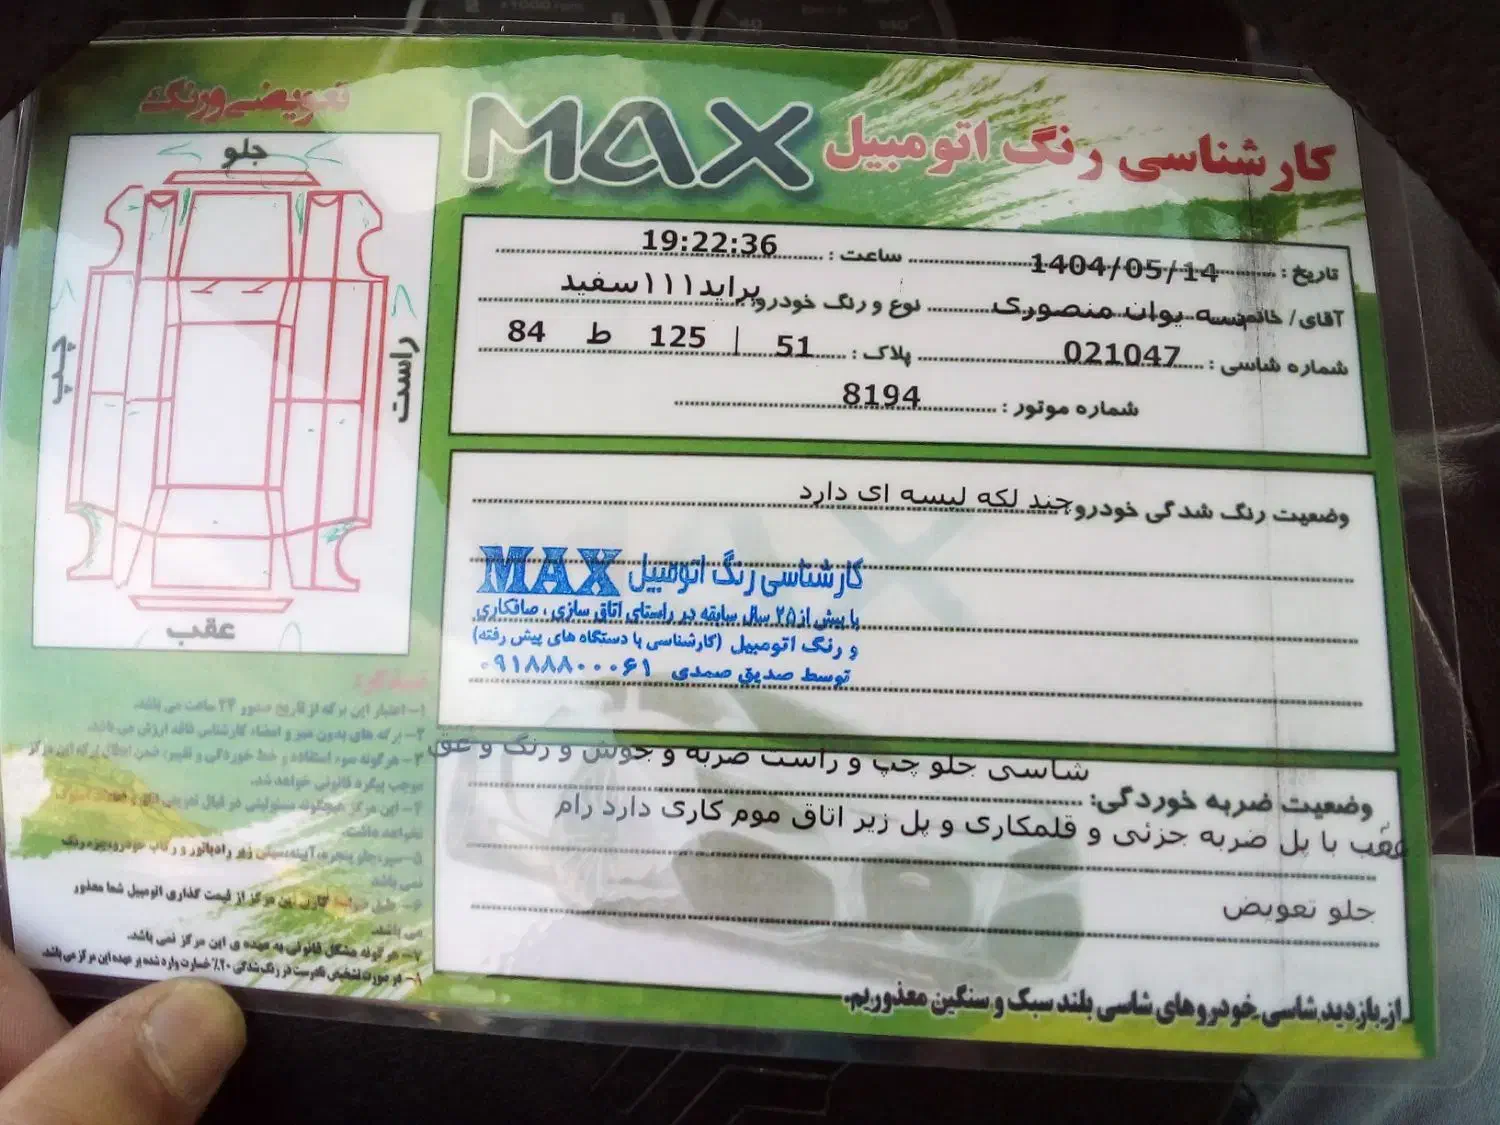 کارشناسی رنگ اتومبیل MAX
تاریخ : 1404/05/14 ساعت : 19:22:36
آقای/ خانم: سه یوان منصوری نوع و رنگ خودرو: پراید۱۱۱سفید
شماره شاسی : 021047 پلاک : 51 | 125 ط 84
شماره موتور : 8194
وضعیت رنگ شدگی خودرو: چند لکه لیسه ای دارد
کارشناسی رنگ اتومبیل MAX
با بیش از ۲۵ سال سابقه در راستای اتاق سازی ، صافکاری
و رنگ اتومبیل (کارشناسی با دستگاه های پیش رفته)
توسط صدیق صمدی ۰۹۱۸۸۸۰۰۰۶۱
وضعیت ضربه خوردگی: شاسی جلو چپ و راست ضربه و جوش و رنگ و عق
عقب با پل ضربه جزئی و قلمکاری و پل زیر اتاق موم کاری دارد رام
جلو تعویض
از بازدید شاسی خودروهای شاسی بلند سبک و سنگین معذوریم.
تعویضی و رنگ
جلو
چپ
راست
عقب
تذکر:
۱- اعتبار این برگه از تاریخ صدور ۲۴ ساعت می باشد.
۲- برگه های بدون مهر و امضاء کارشناس فاقد ارزش می باشد.
۳- هرگونه سوء استفاده و خط خوردگی و تغییر، ضمن ابطال برگه این مرکز
موجب پیگرد قانونی خواهد شد.
۴- این مرکز هیچگونه مسئولیتی در قبال تعویض
نخواهد داشت.
۵- سپر، جلو پنجره، آیینه، سینی زیر رادیاتور و رکاب خودرو، جزء رنگ
نمی باشد
۶- طبق این مرکز از قیمت گذاری اتومبیل شما معذور
می باشد.
۷- هر گونه مشکل قانونی به عهده ی این مرکز نمی باشد.
۸- در صورت تشخیص نادرست در رنگ شدگی ۲۰٪ خسارت وارد شده بر عهده این مرکز می باشد.